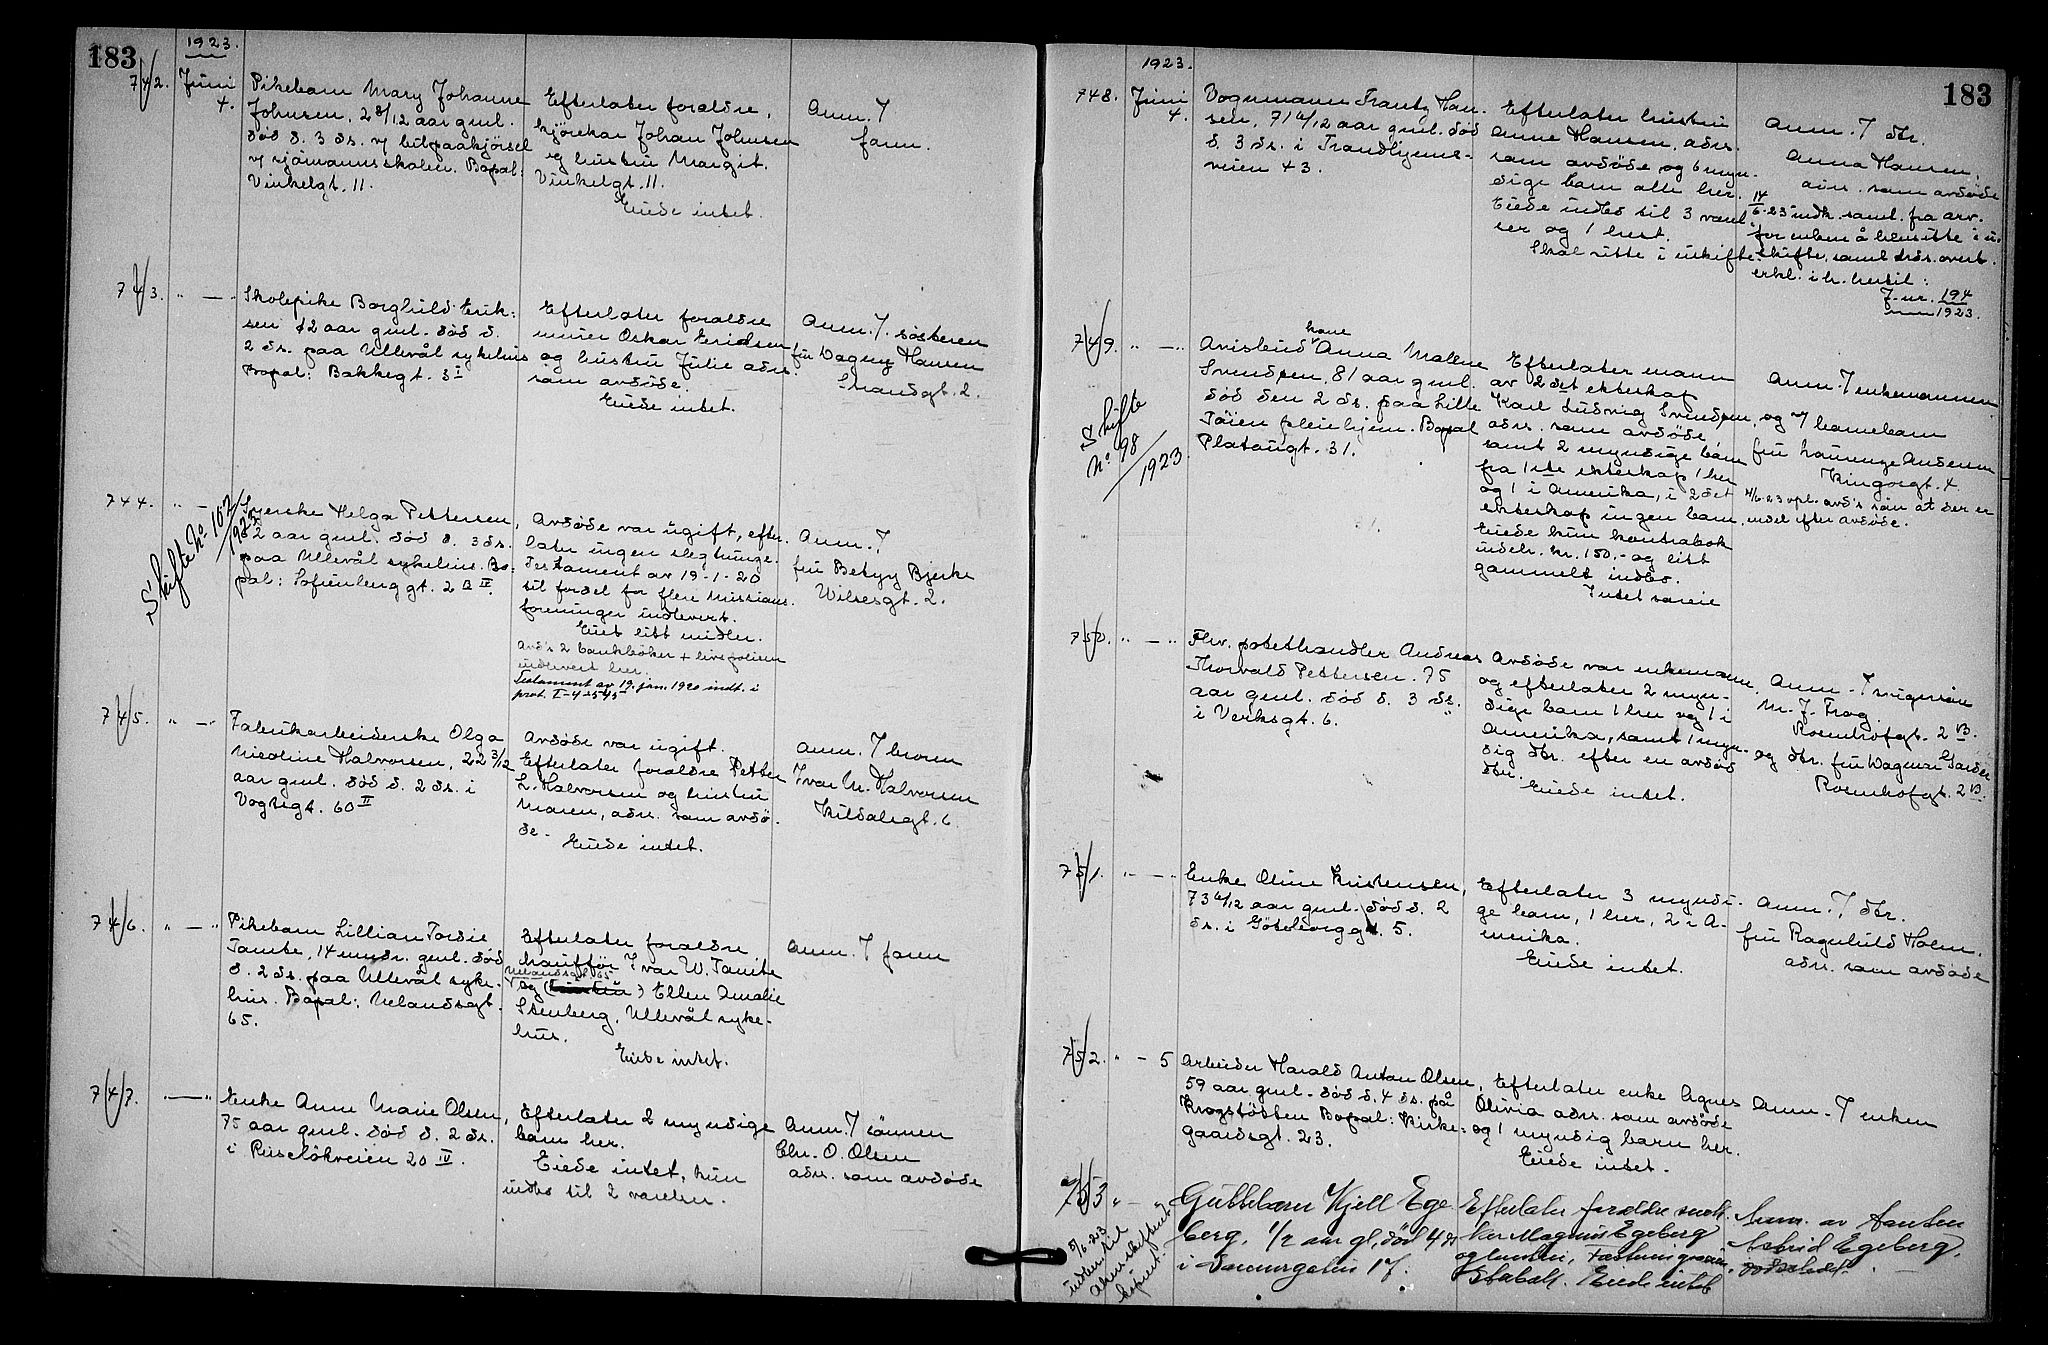 183
1923.
742. Juni 4.
Pikebarn Mary Johanne
Johnsen, 2 8/12 aar gml.
död d. 3 ds. v/ bilpaakjörsel
v/ sjömannsskolen. Bopæl:
Vinkelgt. 11.
Efterlater forældre,
kjörekar Johan Johnsen
og hustru Margit.
Vinkelgt. 11.
Eiede intet.
Anm. 7
faren.
743. " — "
Skolepike Borghild Erik-
sen 12 aar gml. död d.
2 ds. paa Ullevål sykehus
Bopæl: Bakkegt. 3 I
Efterlater forældre
murer Oskar Eriksen
og hustru Julie adr.
som avdöde.
Eiede intet.
Anm. 7. søsteren
fru Dagny Hansen
Strandgt. 2.
744. " — "
Skifte No 102/1923
Syerske Helga Pettersen,
62 aar gml. död d. 3 ds.
paa Ullevål sykehus. Bo-
pæl: Sofienberggt. 2 B IV.
Avdöde var ugift, efter-
later ingen slegtninge.
Testament av 19-1-20
til fordel for flere missions-
foreninger indlevert.
Eiet litt midler.
Avd's 2 bankböker + livspolisen
indlevert her.
Testament av 19. jan. 1920 indt. i
prot. I-4-2545
Anm. 7
fru Betzy Bjerke
Wilsesgt. 2.
745. " — "
Fabrikarbeiderske Olga
Nicoline Halvorsen, 22 3/12
aar gml. död d. 2 ds. i
Vogtsgt. 60 II
Avdöde var ugift.
Efterlater forældre Petter
L. Halvorsen og hustru
Maren, adr. som avdö-
de.
Eiede intet.
Anm. 7 broren
Ivar M. Halvorsen
Kildalsgt. 6.
746. " — "
Pikebarn Lillian Tordie
Tambe, 14 mndr. gml. död
d. 2 ds. paa Ullevål syke-
hus. Bopæl: Uelandsgt.
65.
Efterlater forældre
chaufför Ivar W. Tambe
Uelandsgt. 65
og (hustru) Ellen Amalie
Stenberg, Ullevål syke-
hus.
Eiede intet.
Anm. 7 faren
747. " — "
Enke Anne Marie Olsen,
75 aar gml. död d. 2 ds.
i Ruselökveien 20 IV.
Efterlater 2 myndige
barn her.
Eiede intet, kun
indbo til 2 værelser.
Anm. 7 sönnen
Chr. O. Olsen
adr. som avdöde
183
1923.
748. Juni 4.
Vognmann Frantz Han-
sen, 71 6/12 aar gml. död
d. 3 ds. i Trondhjems-
veien 43.
Efterlater hustru
Anne Hansen, adr.
som avdöde og 6 myn-
dige barn alle her.
Eiede indbo til 3 værel-
ser og 1 hest.
Skal sitte i uskifte.
Anm. 7 dtr.
Anna Hansen,
adr. som avdöde
14/6-23 indk. saml. fra arv.
for enken å hensitte i u-
skifte, saml. dör. overt.
erkl. i h. hertil:
J. nr. 194
1923.
749. " — "
Skifte No 98/1923
Avisbud kone Anna Malene
Svendsen, 81 aar gml.
död den 2 ds. paa Lille
Töien pleiehjem. Bopæl
Platougt. 31.
Efterlater mann
av 2det ekteskap
Karl Ludvig Svendsen,
adr. som avdöde,
samt 2 myndige barn
fra 1ste ekteskap 1 her
og 1 i Amerika, i 2det
ekteskap ingen barn.
Eiede kun kontrabok
indeh. kr. 150,- og litt
gammelt indbo.
Intet særeie
Anm. 7 enkemannen
og 7 barnebarn
fru Laurenze Andersen
Kingosgt. 4.
11/6-23 opl. avd's sön at der er
midel efter avdöde.
750. " — "
Fhv. potethandler Andreas
Thorvald Pettersen. 75
aar gml. död d. 3 ds.
i Verksgt. 6.
Avdöde var enkemann,
og efterlater 2 myn-
dige barn 1 her og 1 i
Amerika, samt 1 myn-
dig dtr. efter en avdöd
dtr.
Eiede intet.
Anm. 7 svigersön
M. J. Frog.
Rosenhofgt. 2 B.
og dtr. fru Dagmar Garder
Rosenhofgt. 2 B.
751. " — "
Enke Oline Kristensen,
73 6/12 aar gml. död d. 2
ds. i Göteborggt. 5.
Efterlater 3 myndi-
ge barn, 1 her, 2 i A-
merika.
Eiede intet.
Anm. 7 dtr.
fru Ragnhild Holm,
adr. som avdöde
752. " — 5
Arbeider Harald Anton Olsen,
59 aar gml. död d. 4 ds. på
Krogstötten Bopæl: Kirke-
gaardsgt. 23.
Efterlater enke Agnes
Olivia adr. som avdöde
og 1 myndig barn her.
Eiede intet.
Anm. 7 enken
753 " — "
5/6-23
Guttebarn Kjell Ege-
berg, 1/2 aar gl, död 4 ds
i 17.
Efterlater forældre snek-
ker Magnus Egeberg
og hustru,
Eiede intet
Anm. av tanten
Astrid Egeberg,